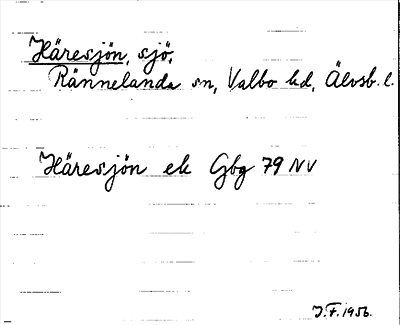 Häresjön, sjö.
Rännelanda sn, Valbo hd, Älvsb. l.
Häresjön ek Gbg 79 NV
J.F. 1956.